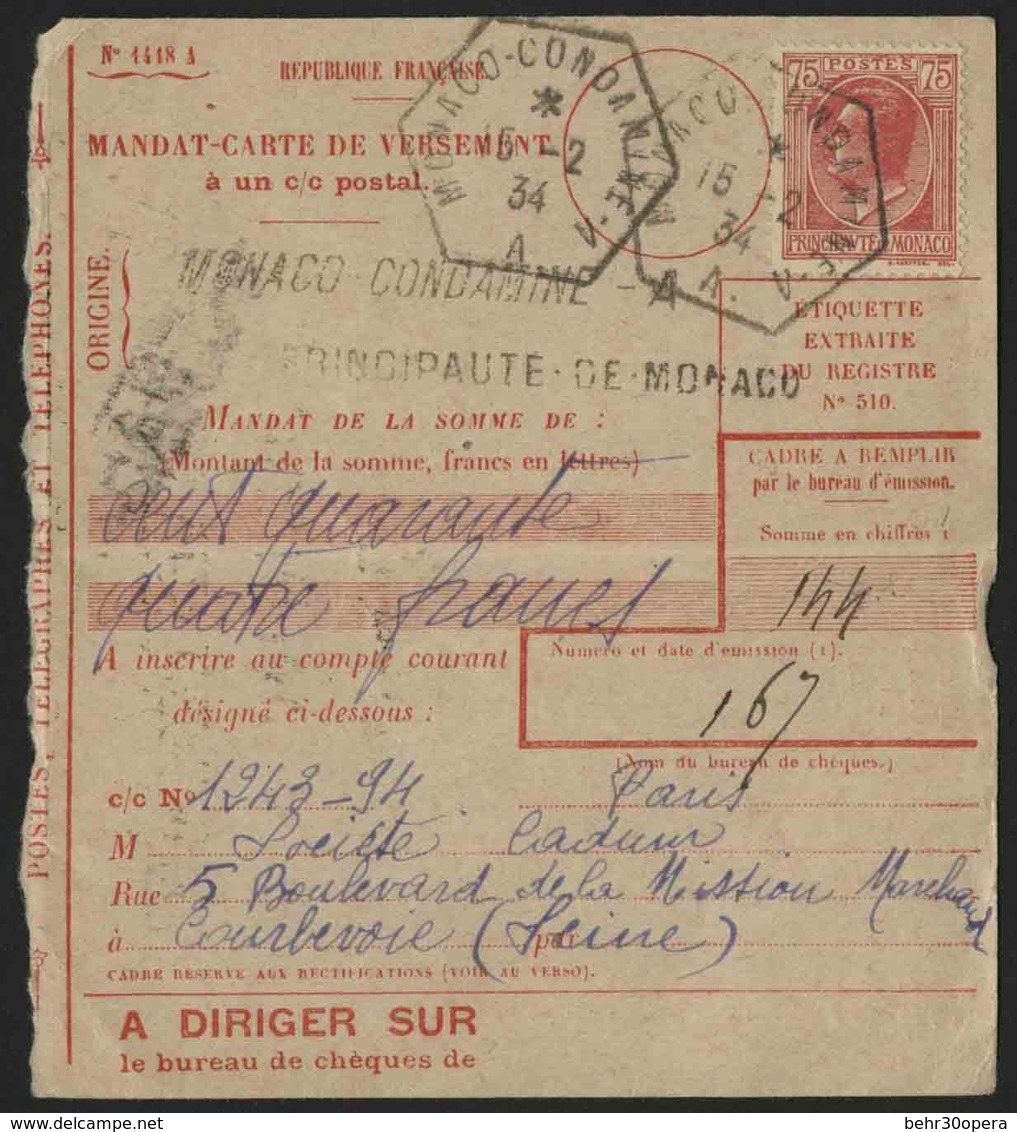 Nº 1418 A
REPUBLIQUE FRANÇAISE.
MANDAT-CARTE DE VERSEMENT
à un c/c postal.
MONACO-CONDAMINE - A.
*
15 -2
34
A
MONACO-CONDAMINE - A.
*
15 -2
34
A.
75 POSTES 75
PRINCIPAUTÉ DE MONACO
ORIGINE.
MONACO-CONDAMINE - A
PRINCIPAUTE-DE-MONACO
POSTES, TÉLÉGRAPHES ET TÉLÉPHONES.
ÉTIQUETTE
EXTRAITE
DU REGISTRE
Nº 510.
MANDAT DE LA SOMME DE :
(Montant de la somme, francs en lettres)
cent quarante
quatre francs
CADRE A REMPLIR
par le bureau d'émission.
Somme en chiffres :
144
A inscrire au compte courant
désigné ci-dessous :
Numéro et date d'émission (1).
167
(Nom du bureau de chèques.)
c/c Nº 1243-94 Paris
M Société Cadum
Rue 5 Boulevard de la Mission Marchand
à Courbevoie (Seine) par
CADRE RÉSERVÉ AUX RECTIFICATIONS (VOIR AU VERSO).
A DIRIGER SUR
le bureau de chèques de
delcampe.net
behr30opera